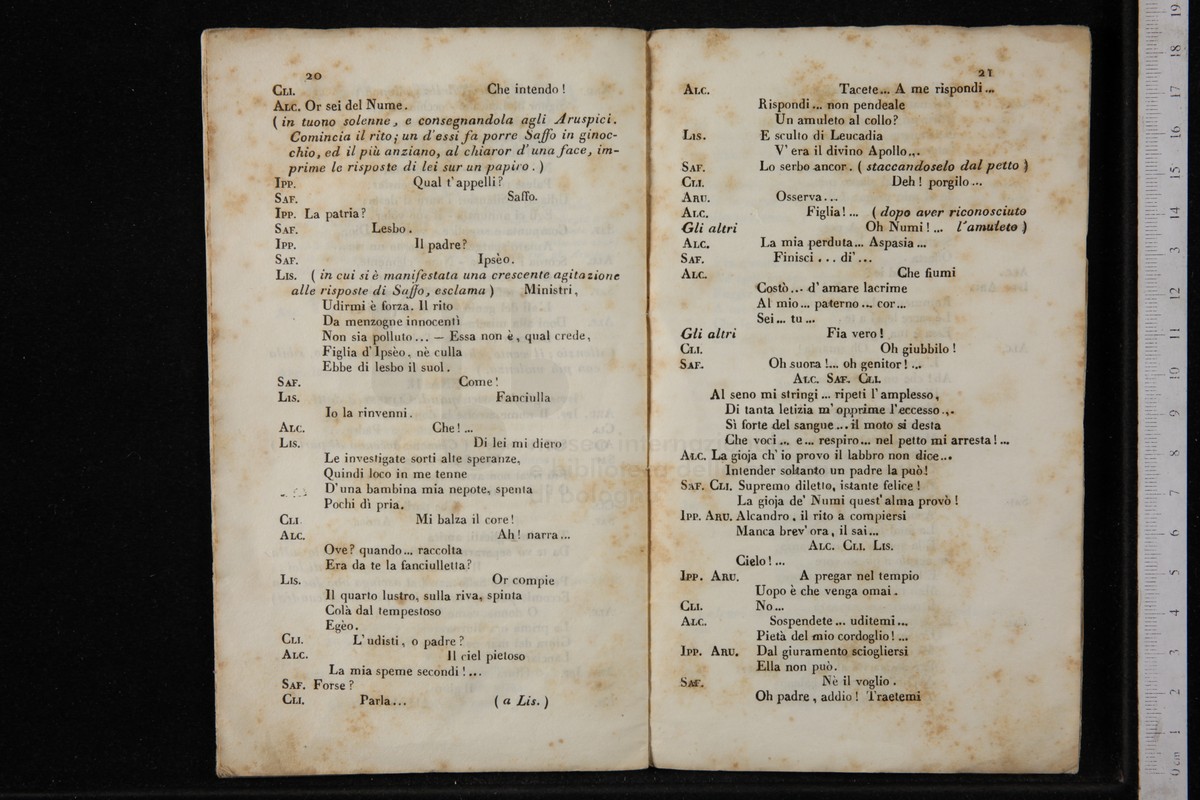 20
CLI. Che intendo !
ALC. Or sei del Nume.
( in tuono solenne, e consegnandola agli Aruspici.
Comincia il rito; un d'essi fa porre Saffo in ginoc-
chio, ed il più anziano, al chiaror d'una face, im-
prime le risposte di lei sur un papiro. )
IPP. Qual t'appelli?
SAF. Saffo.
IPP. La patria?
SAF. Lesbo.
IPP. Il padre?
SAF. Ipsèo.
LIS. ( in cui si è manifestata una crescente agitazione
alle risposte di Saffo, esclama ) Ministri,
Udirmi è forza. Il rito
Da menzogne innocenti
Non sia polluto... — Essa non è, qual crede,
Figlia d'Ipsèo, nè culla
Ebbe di lesbo il suol.
SAF. Come!
LIS. Fanciulla
Io la rinvenni.
ALC. Che! ...
LIS. Di lei mi diero
Le investigate sorti alte speranze,
Quindi loco in me tenne
D'una bambina mia nepote, spenta
Pochi dì pria.
CLI. Mi balza il core!
ALC. Ah! narra...
Ove? quando... raccolta
Era da te la fanciulletta?
LIS. Or compie
Il quarto lustro, sulla riva, spinta
Colà dal tempestoso
Egèo.
CLI. L'udisti, o padre?
ALC. Il ciel pietoso
La mia speme secondi !...
SAF. Forse ?
CLI. Parla... ( a Lis. )
21
ALC. Tacete... A me rispondi...
Rispondi... non pendeale
Un amuleto al collo?
LIS. E sculto di Leucadia
V'era il divino Apollo...
SAF. Lo serbo ancor. ( staccandoselo dal petto )
CLI. Deh! porgilo...
ARU. Osserva...
ALC. Figlia!... ( dopo aver riconosciuto
Gli altri Oh Numi!... l'amuleto )
ALC. La mia perduta... Aspasia...
SAF. Finisci... di'...
ALC. Che fiumi
Costò... d'amare lacrime
Al mio... paterno... cor...
Sei... tu...
Gli altri Fia vero!
CLI. Oh giubbilo !
SAF. Oh suora !... oh genitor !...
ALC. SAF. CLI.
Al seno mi stringi... ripeti l'amplesso,
Di tanta letizia m'opprime l'eccesso...
Sì forte del sangue... il moto si desta
Che voci... e... respiro... nel petto mi arresta!...
ALC. La gioja ch'io provo il labbro non dice...
Intender soltanto un padre la può!
SAF. CLI. Supremo diletto, istante felice !
La gioja de' Numi quest'alma provò !
IPP. ARU. Alcandro, il rito a compiersi
Manca brev'ora, il sai...
ALC. CLI. LIS.
Cielo!...
IPP. ARU. A pregar nel tempio
Uopo è che venga omai.
CLI. No...
ALC. Sospendete... uditemi...
Pietà del mio cordoglio!...
IPP. ARU. Dal giuramento sciogliersi
Ella non può.
SAF. Nè il voglio.
Oh padre, addio ! Traetemi